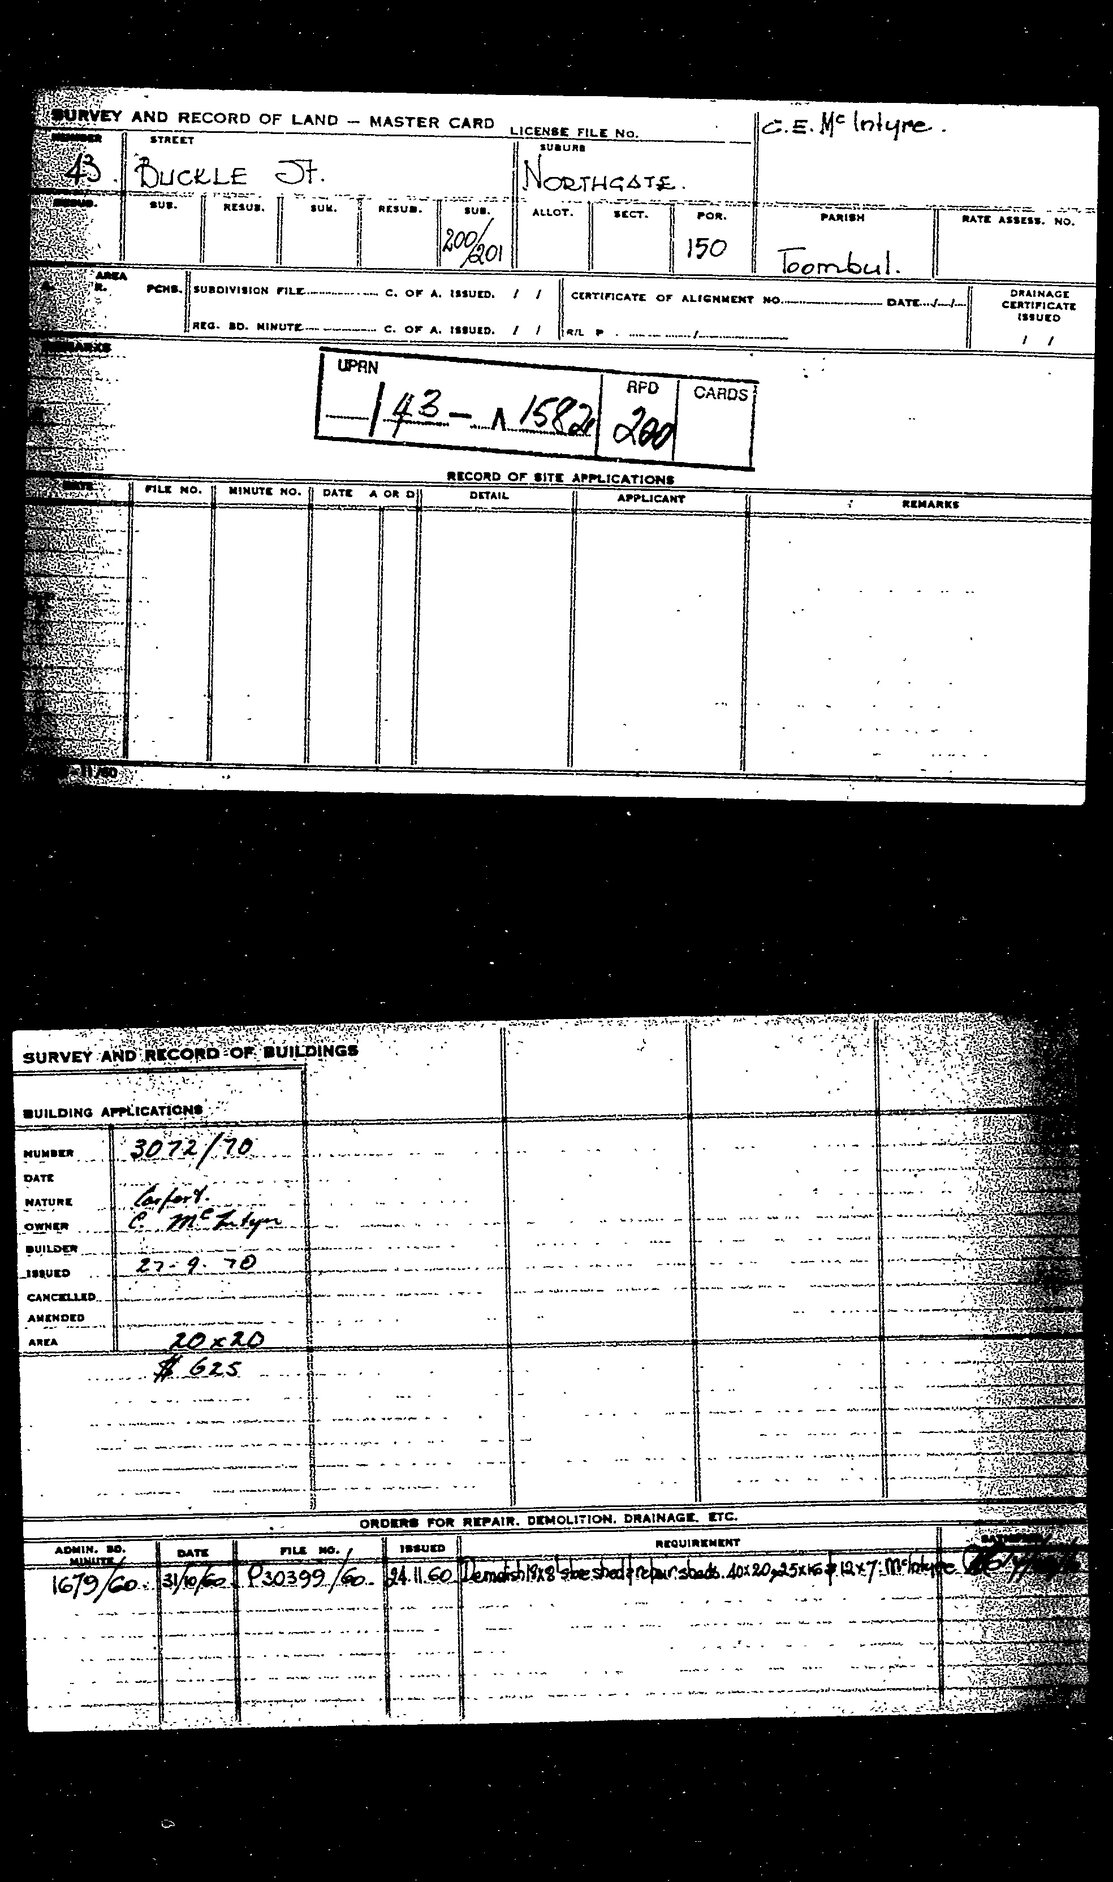 SURVEY AND RECORD OF LAND — MASTER CARD
LICENSE FILE No.
C.E. McIntyre.
NUMBER STREET SUBURB
43. BUCKLE St. NORTHGATE.
RESUB. SUB. RESUB. SUB. RESUB. SUB. ALLOT. SECT. POR. PARISH RATE ASSESS. NO.
200/201 150 Toombul.
AREA
A. R. PCHS. SUBDIVISION FILE C. OF A. ISSUED. / / CERTIFICATE OF ALIGNMENT NO. DATE / / DRAINAGE CERTIFICATE ISSUED
REG. BD. MINUTE C. OF A. ISSUED. / / R/L P / / /
REMARKS
UPRN RPD CARDS
/ 43 — 1582 200
RECORD OF SITE APPLICATIONS
DATE FILE NO. MINUTE NO. DATE A OR D DETAIL APPLICANT REMARKS
11/60
SURVEY AND RECORD OF BUILDINGS
BUILDING APPLICATIONS
NUMBER 3072/70
DATE
NATURE Carport.
OWNER C. McIntyre
BUILDER
ISSUED 27-9-70
CANCELLED
AMENDED
AREA 20x20
$ 625
ORDERS FOR REPAIR, DEMOLITION, DRAINAGE, ETC.
ADMIN. BD. MINUTE DATE FILE NO. ISSUED REQUIREMENT
1679/60. 31/10/60 P30399/60. 24.11.60 Demolish 18'x8' shed & repair sheds. 40x20, 25x16 & 12x7. McIntyre